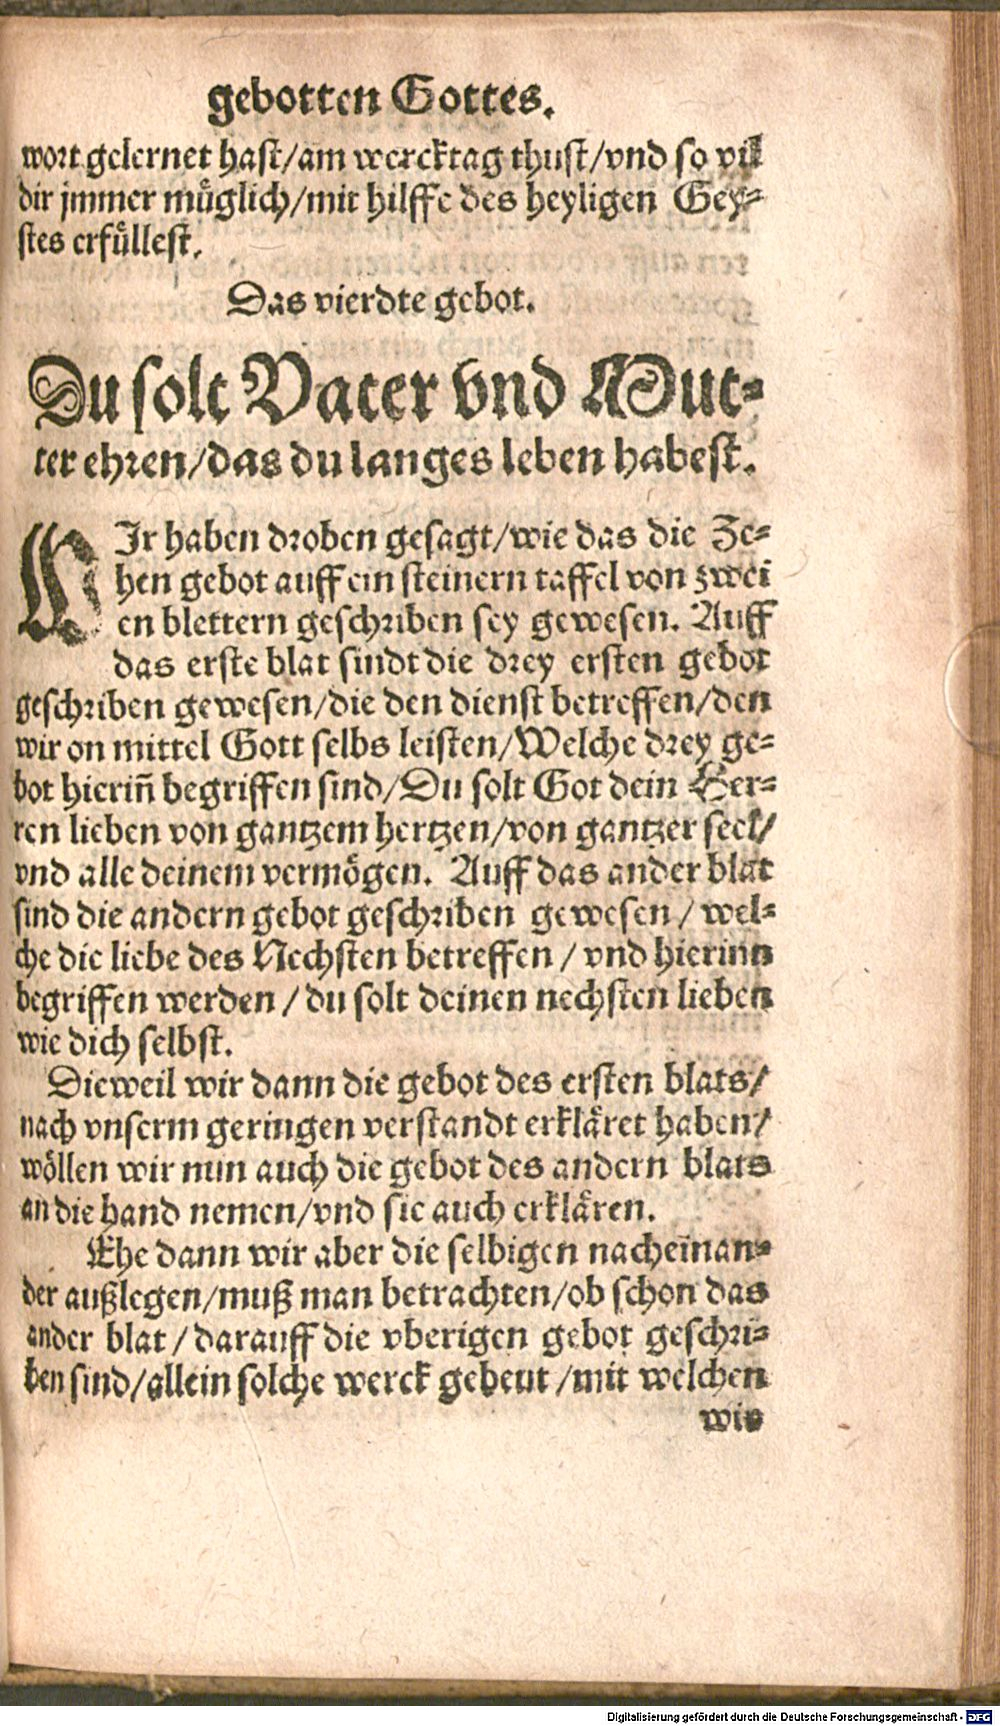 gebotten Gottes.
wort gelernet hast/am wercktag thust/vnd so vil
dir jmmer müglich/mit hilffe des heyligen Gey-
stes erfüllest.
Das vierdte gebot.
Du solt Vater vnd Mut-
ter ehren/das du langes leben habest.
WIr haben droben gesagt/wie das die Ze-
hen gebot auff ein steinern taffel von zwei
en blettern geschriben sey gewesen. Auff
das erste blat sindt die drey ersten gebot
geschriben gewesen/die den dienst betreffen/den
wir on mittel Gott selbs leisten/Welche drey ge-
bot hieriñ begriffen sind/Du solt Got dein Her-
ren lieben von gantzem hertzen/von gantzer seel/
vnd alle deinem vermögen. Auff das ander blat
sind die andern gebot geschriben gewesen/wel-
che die liebe des Nechsten betreffen/vnd hierinn
begriffen werden/du solt deinen nechsten lieben
wie dich selbst.
Dieweil wir dann die gebot des ersten blats/
nach vnserm geringen verstandt erkläret haben/
wöllen wir nun auch die gebot des andern blats
an die hand nemen/vnd sie auch erklären.
Ehe dann wir aber die selbigen nacheinan-
der außlegen/muß man betrachten/ob schon das
ander blat/darauff die vberigen gebot geschri-
ben sind/allein solche werck gebeut/mit welchen
wir
Digitalisierung gefördert durch die Deutsche Forschungsgemeinschaft - DFG